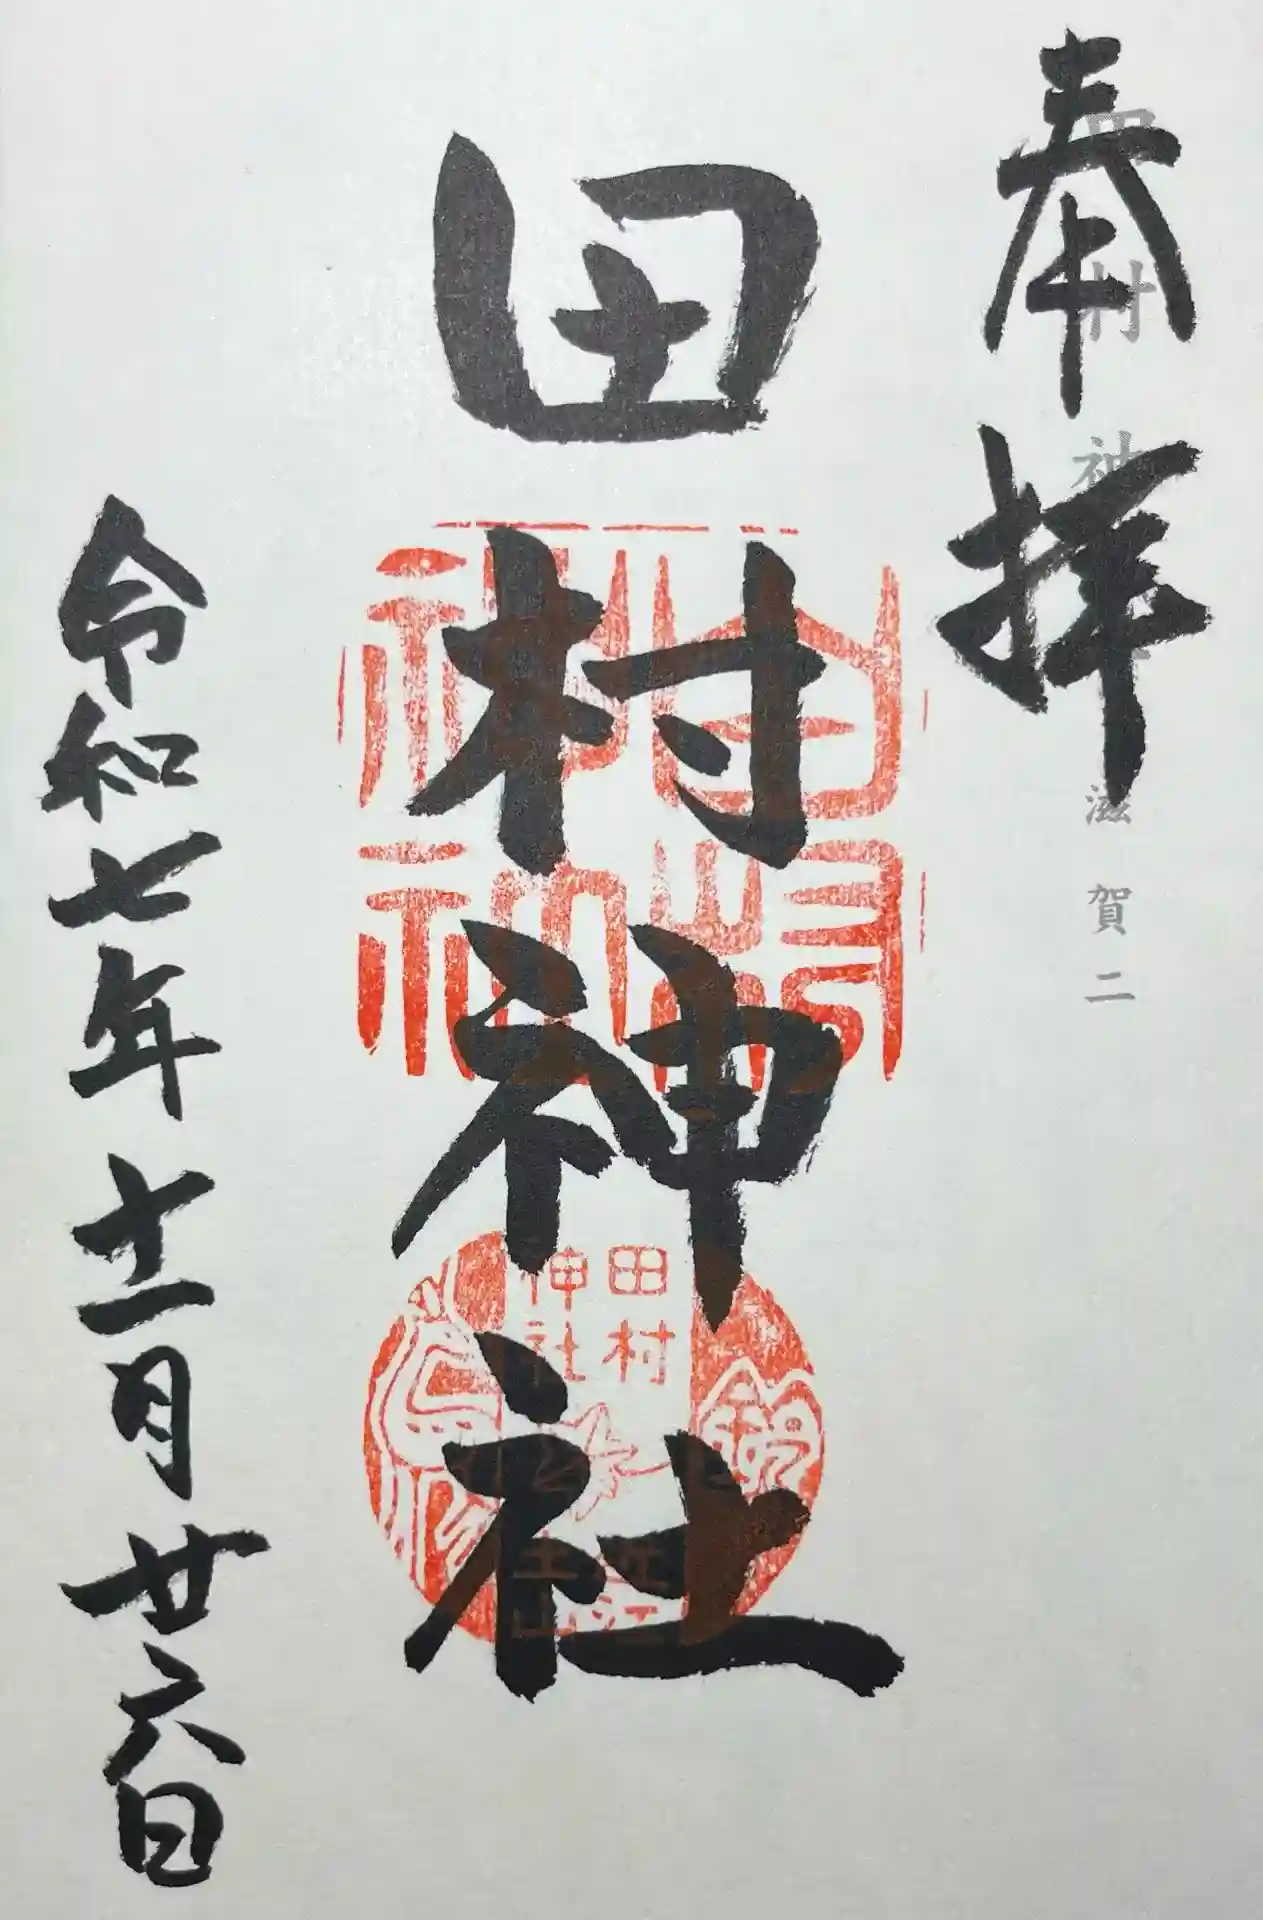 奉拝
田村神社
滋賀二
田村神社
令和七年十一月廿六日
田村
神社
近江
土山